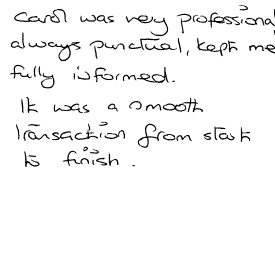 Carol was very professional
always punctual, kept me
fully informed.
It was a smooth
transaction from start
to finish.